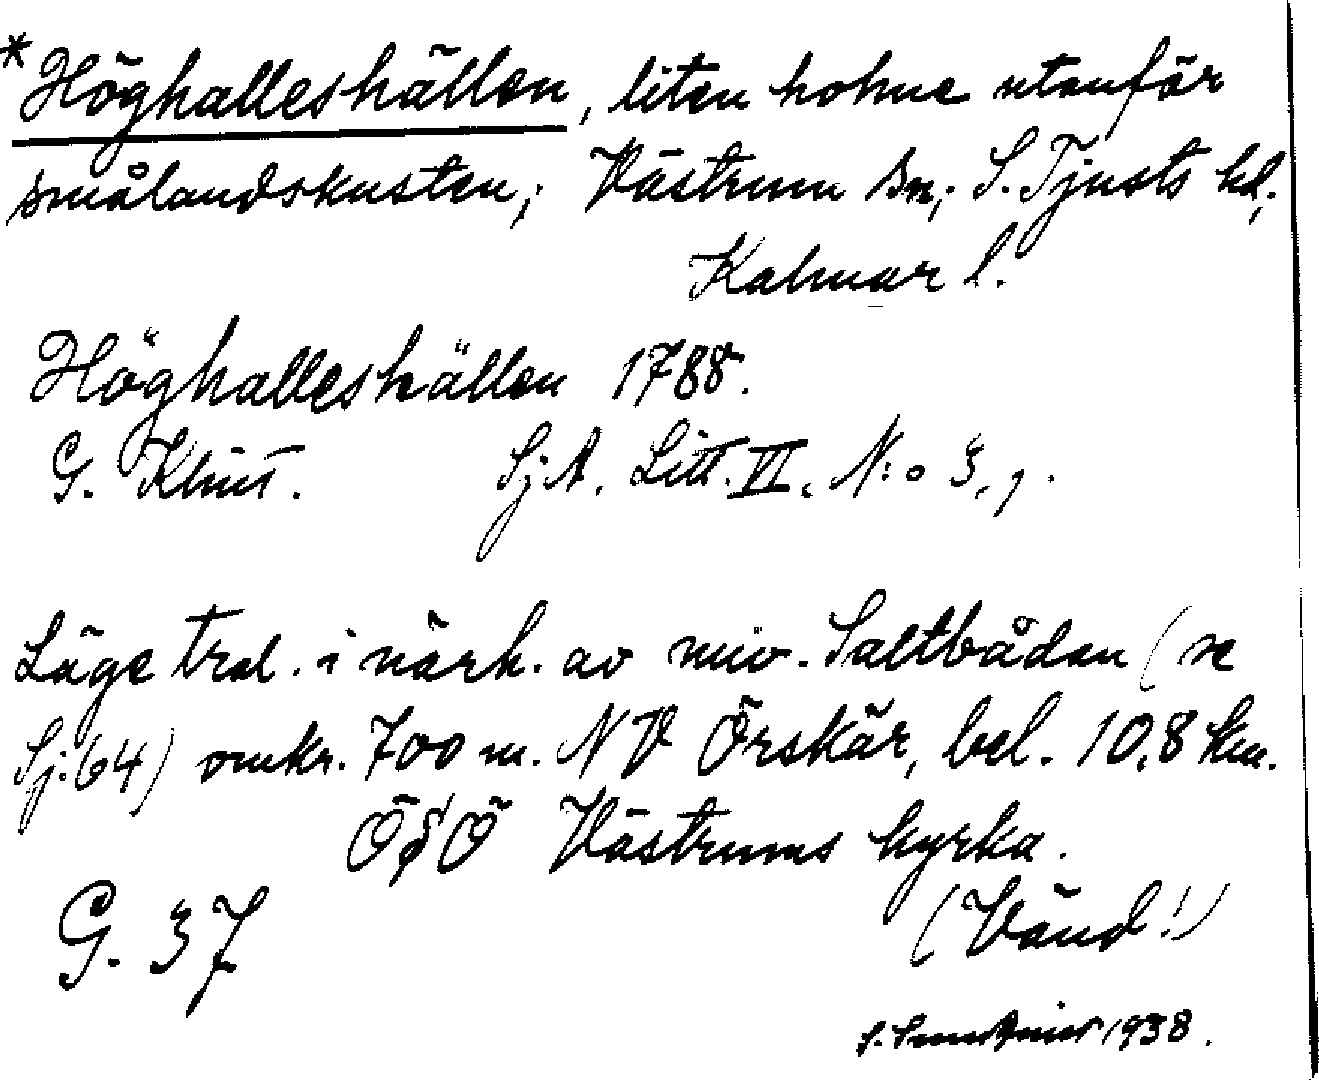 *Höghalleshällen, liten holme utanför
smålandskusten; Västrum sn; S. Tjusts hd;
Kalmar l.
Höghalleshällen 1788.
G. Klint. SjA. Litt. VI. N:o 3, 9.
Läge trol. i närh. av nuv. Saltbådan (se
Sj. 64) omkr. 700 m. NV Örskär, bel. 10,8 km.
ÖSÖ Västrums kyrka.
G. 37 (Vänd!)
S. 1938.